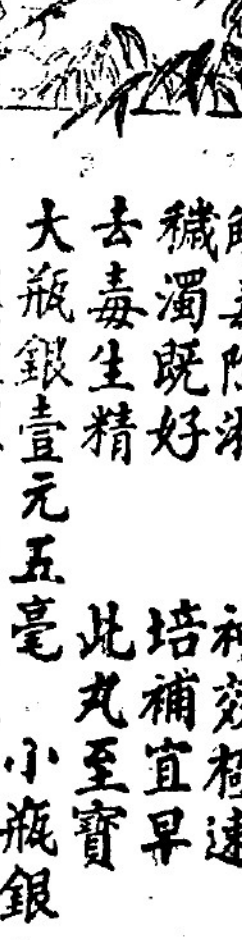 穢濁既好 培補宜早
去毒生精 此丸至寶
大瓶銀壹元五毫 小瓶銀